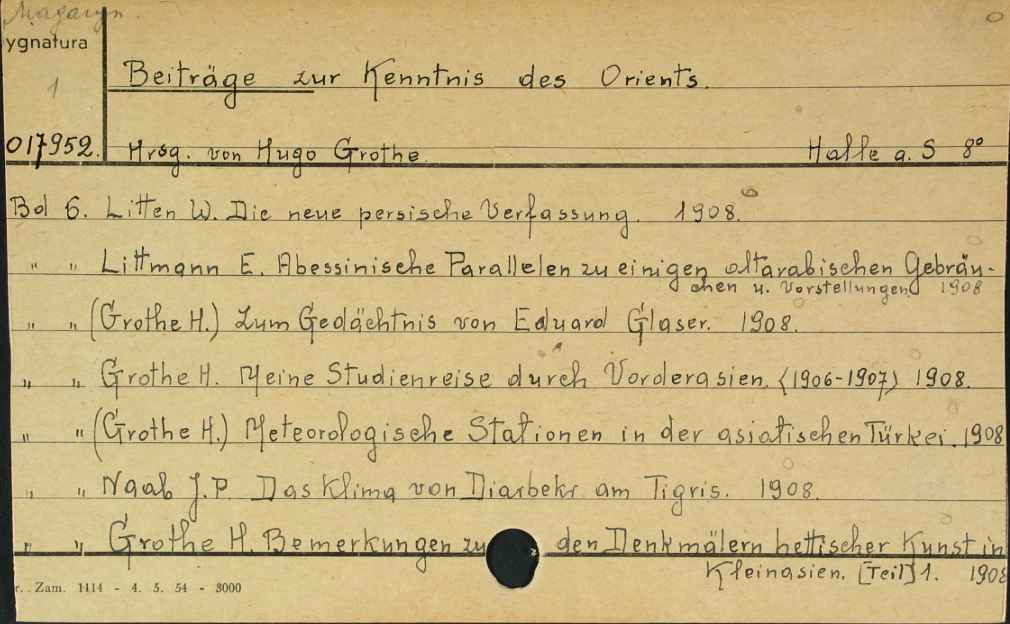 Magazyn.
ygnatura
1
Beiträge zur Kenntnis des Orients.
017952. Hrsg. von Hugo Grothe. Halle a. S 8°
Bd 6. Litten W. Die neue persische Verfassung. 1908.
" " Littmann E. Abessinische Parallelen zu einigen altarabischen Gebräu-
chen u. Vorstellungen 1908
" " (Grothe H.) Zum Gedächtnis von Eduard Glaser. 1908.
" " Grothe H. Meine Studienreise durch Vorderasien. (1906-1907) 1908.
" " (Grothe H.) Meteorologische Stationen in der asiatischen Türkei. 1908
" " Naab J.P. Das Klima von Diarbekr am Tigris. 1908.
" " Grothe H. Bemerkungen zu den Denkmälern hettischer Kunst in
Kleinasien. [Teil] 1. 1908
r. . Zam. 1114 - 4. 5. 54 - 3000